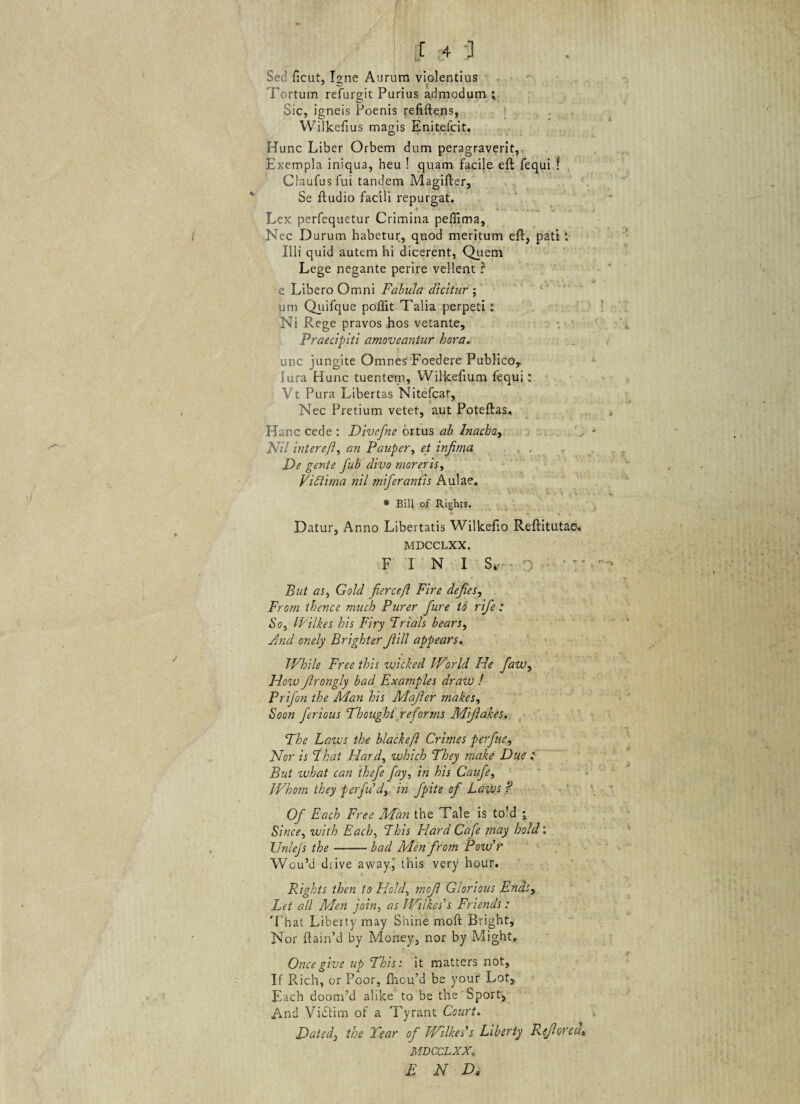 [ 4 ]
Sed ſicut, Igne Aurum violentius
Tortum reſurgit Purius admodum ;
Sic, igneis Poenis reſiſtens,
Wilkeſius magis Eniteſcit.
Hunc Liber Orbem dum peragraverit,
Exempla iniqua, heu ! quam facile eſt ſequi !
Clauſus ſui tandem Magiſter,
Se ſtudio facili repurgat.
Lex perſequetur Crimina peſſima,
Nec Durum habetur, quod meritum eſt, pati :
Illi quid autem hi dicerent, Quem
Lege negante perire vellent ?
e Libero Omni Fabula dicitur ;
um Quiſque poſſit Talia perpeti :
Ni Rege pravos hos vetante,
Praecipiti amoveantur hora.
unc jungite Omnes Foedere Publico,
Iura Hunc tuentem, Wilkeſium ſequi :
Vt Pura Libertas Niteſcat,
Nec Pretium vetet, aut Poteſtas.
Hanc cede : Diveſne ortus ab Inacho,
Nil intereſt, an Pauper, et infima
De gente ſub divo moreris,
Victima nil miſerantis Aulae.
* Bill of Rights.
Datur, Anno Libertatis Wilkeſio Reſtitutae.
MDCCLXX.
F I N I S.
But as, Gold fierceſt Fire defies,
From thence much Purer ſure to riſe :
So, Wilkes his Firy Trials bears,
And onely Brighter ſtill appears.
While Free this wicked World He ſaw,
How ſtrongly bad Examples draw !
Priſon the Man his Maſter makes,
Soon ſerious Thought reforms Miſtakes.
The Laws the blackeſt Crimes perſue,
Nor is That Hard, which They make Due :
But what can theſe ſay, in his Cauſe,
Whom they perſu'd, in ſpite of Laws ?
Of Each Free Man the Tale is told ;
Since, with Each, This Hard Caſe may hold :
Unleſs the —— bad Men from Pow'r
Wou'd drive away, this very hour.
Rights then to Hold, moſt Glorious Ends,
Let all Men join, as Wilkes's Friends :
That Liberty may Shine moſt Bright,
Nor ſtain'd by Money, nor by Might.
Once give up This : it matters not,
If Rich, or Poor, ſhou'd be your Lot,
Each doom'd alike to be the Sport,
And Victim of a Tyrant Court.
Dated, the Year of Wilkes's Liberty Reſtored.
MDCCLXX.
E N D.